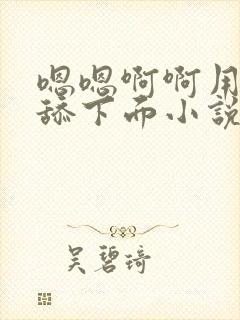 嗯嗯啊啊用
舔下面小说
吴碧琦